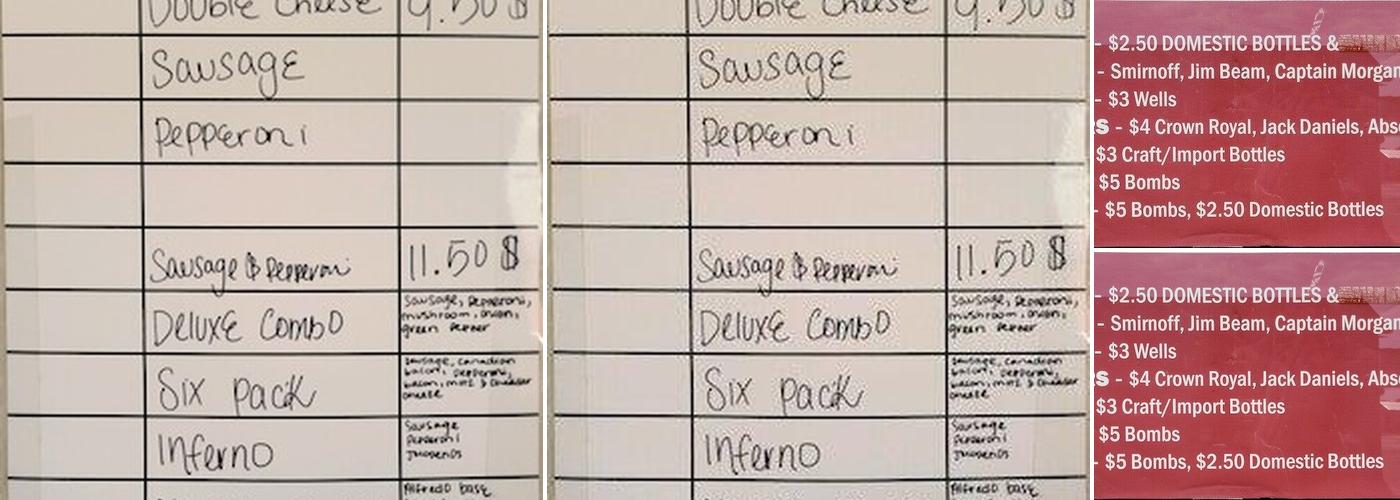 Double Cheese 9.50 $
Sausage
Pepperoni
Sausage & Pepperoni 11.50 $
Deluxe Combo
Sausage, Pepperoni,
mushroom, onion,
green Pepper
Six pack
Sausage, Canadian
bacon, pepperoni,
bacon,
cheese
Inferno
Sausage
Pepperoni
Jalapenos
Alfredo base
Double Cheese 9.50 $
Sausage
Pepperoni
Sausage & Pepperoni 11.50 $
Deluxe Combo
Sausage, Pepperoni,
mushroom, onion,
green Pepper
Six pack
Sausage, Canadian
bacon, pepperoni,
bacon,
cheese
Inferno
Sausage
Pepperoni
Jalapenos
Alfredo base
- $2.50 DOMESTIC BOTTLES &
- Smirnoff, Jim Beam, Captain Morgan
- $3 Wells
RS - $4 Crown Royal, Jack Daniels, Abso
$3 Craft/Import Bottles
$5 Bombs
- $5 Bombs, $2.50 Domestic Bottles
- $2.50 DOMESTIC BOTTLES &
- Smirnoff, Jim Beam, Captain Morgan
- $3 Wells
RS - $4 Crown Royal, Jack Daniels, Abso
$3 Craft/Import Bottles
$5 Bombs
- $5 Bombs, $2.50 Domestic Bottles